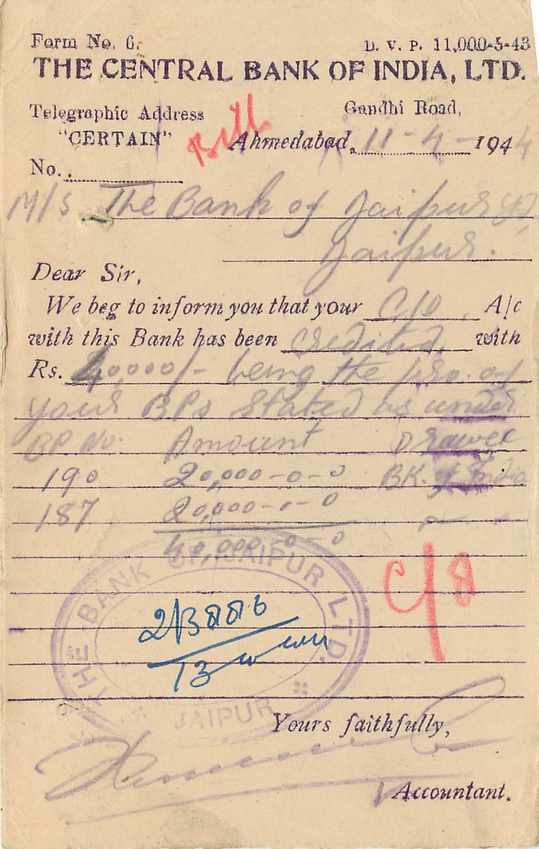 Form No. 6.
D. V. P. 11,000-5-43
THE CENTRAL BANK OF INDIA, LTD.
Telegraphic Address
Gandhi Road,
"CERTAIN"
Bill
Ahmedabad, 11-4-1944
No.
M/S The Bank of Jaipur
Jaipur.
Dear Sir,
We beg to inform you that your C/D A/c
with this Bank has been Credited with
Rs. 40,000/- being the pro. of
your BPs stated as under
BP No. Amount Drawee
190 20,000-0-0 BK. of India
187 20,000-0-0
40,000-0-0
THE BANK OF JAIPUR LTD.
JAIPUR
Yours faithfully,
Accountant.